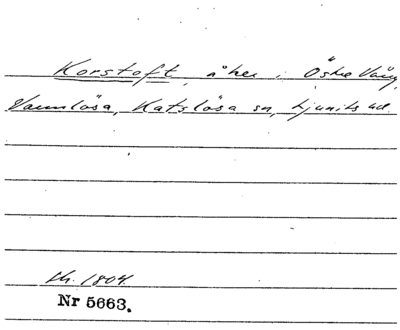 Korstoft, åker i Östra Vång,
Vannlösa, Katslösa sn, Ljunits hd.
Kh. 1804.
Nr 5663.